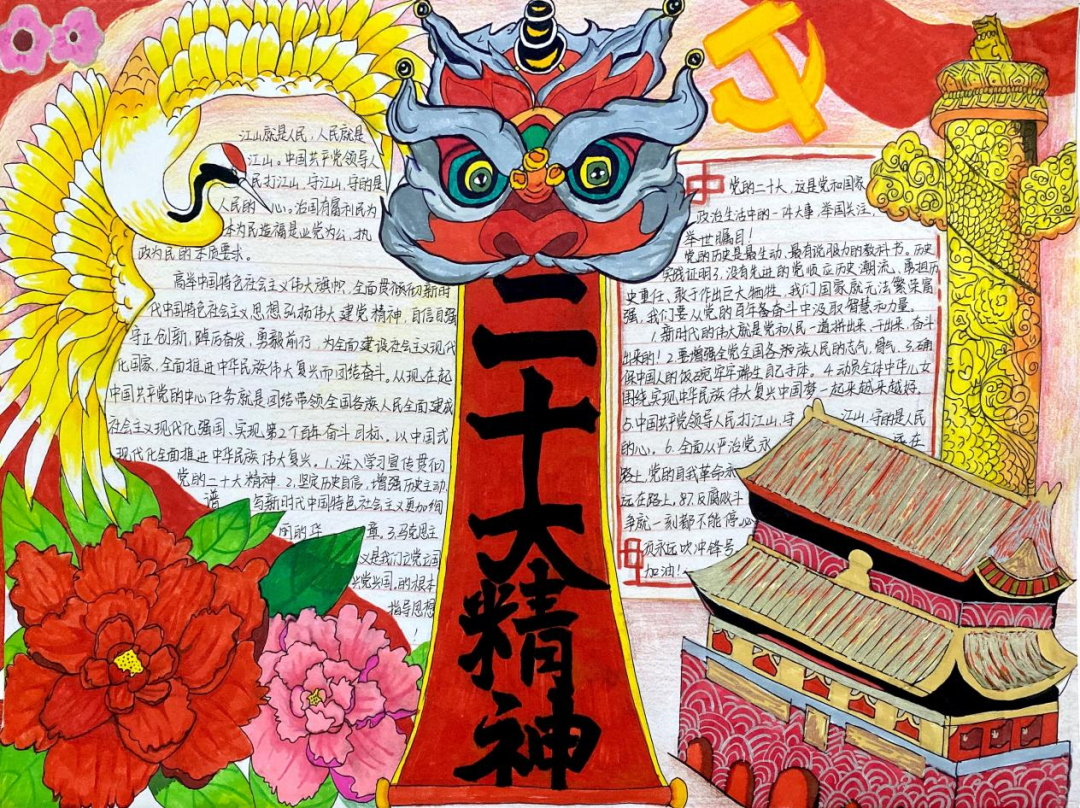 江山就是人民，人民就是
江山。中国共产党领导人
民打江山，守江山，守的是
人民的心。治国有常利民为
本为民造福是立党为公，执
政为民的本质要求。
高举中国特色社会主义伟大旗帜，全面贯彻新时
代中国特色社会主义思想弘扬伟大建党精神，自信自强
守正创新，踔厉奋发，勇毅前行，为全面建设社会主义现代
化国家，全面推进中华民族伟大复兴而团结奋斗。从现在起
中国共产党的中心任务就是团结带领全国各族人民全面建成
社会主义现代化强国、实现第2个百年奋斗目标，以中国式
现代化全面推进中华民族伟大复兴。1.深入学习宣传贯彻
党的二十大精神。2.坚定历史自信，增强历史主动，
谱 写新时代中国特色社会主义更加绚
丽的华 章。3.马克思主
义是我们立党立国
兴党兴国，的根本
指导思想
！
二十大精神
党的二十大，这是党和国家
政治生活中的一件大事，举国关注，
举世瞩目！
党的历史是最生动、最有说服力的教科书。历史
实践证明了，没有先进的党顺应历史潮流、勇担历
史重任、敢于作出巨大牺牲，我们国家就无法繁荣富
强，我们要从党的百年奋斗中汲取智慧和力量。
1.新时代的伟大就是党和人民一道拼出来、干出来、奋斗
出来的！2.要增强全党全国各族人民的志气、骨气、3.确
保中国人的饭碗牢牢端生自己手体。4.动员全体中华儿女
围绕实现中华民族伟大复兴中国梦一起来越来越好.
5.中国共产党领导人民打江山，守 江山，守的是人民
的心。6.全面从严治党永 远在
路上，党的自我革命永
远在路上，87.反腐败斗
争就一刻都不能停，必
须永远吹冲锋号。
加油！